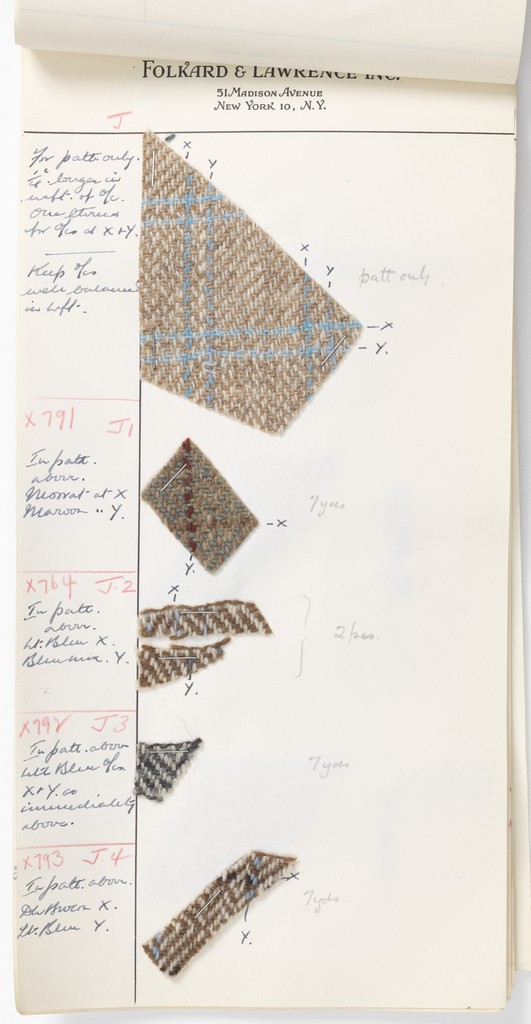 FOLKARD & LAWRENCE INC.
51 MADISON AVENUE
NEW YORK 10, N.Y.
J
For patt. only.
longer in
weft. of o/c.
One
for o/cs at X + Y.
Keep o/cs
well balanced
in weft.
X
Y
X
Y
patt only.
X
Y.
X791 J1
In patt.
above.
at X
Maroon " Y.
7 yds
X
Y.
X764 J.2
In patt.
above.
Lt. Bleu X.
Bleu mix. Y.
X
2 pcs.
Y.
X792 J3
In patt. above
Bleu o/cs
X + Y. as
immediately
above.
7 yds
X793 J.4
In patt. above.
Dk Brown X.
Lt. Bleu Y.
X
7 yds.
Y.